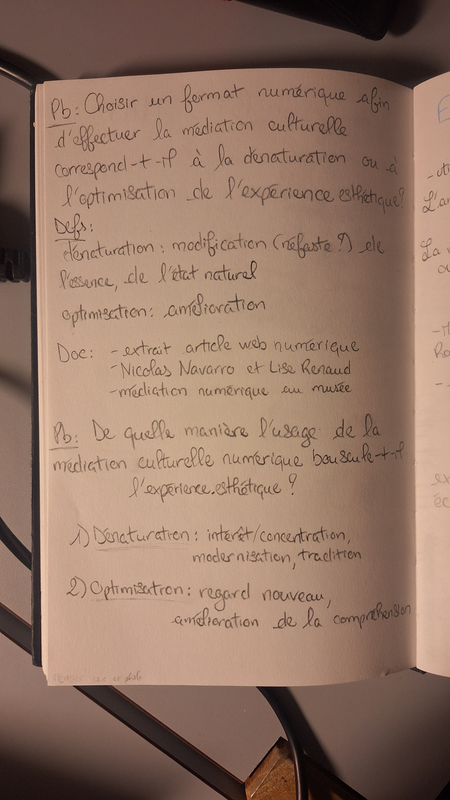 Pb: Choisir un format numérique afin
d'effectuer la médiation culturelle
correspond-t-il à la dénaturation ou à
l'optimisation de l'expérience esthétique?
Defs:
dénaturation: modification (néfaste?) de
l'essence, de l'état naturel
optimisation: amélioration
Doc: - extrait article web numérique
- Nicolas Navarro et Lise Renaud
- médiation numérique au musée
Pb: De quelle manière l'usage de la
médiation culturelle numérique bouscule-t-il
l'expérience esthétique?
1) Dénaturation: intérêt/concentration,
modernisation, tradition
2) Optimisation: regard nouveau,
amélioration de la compréhension
E
L'a
La